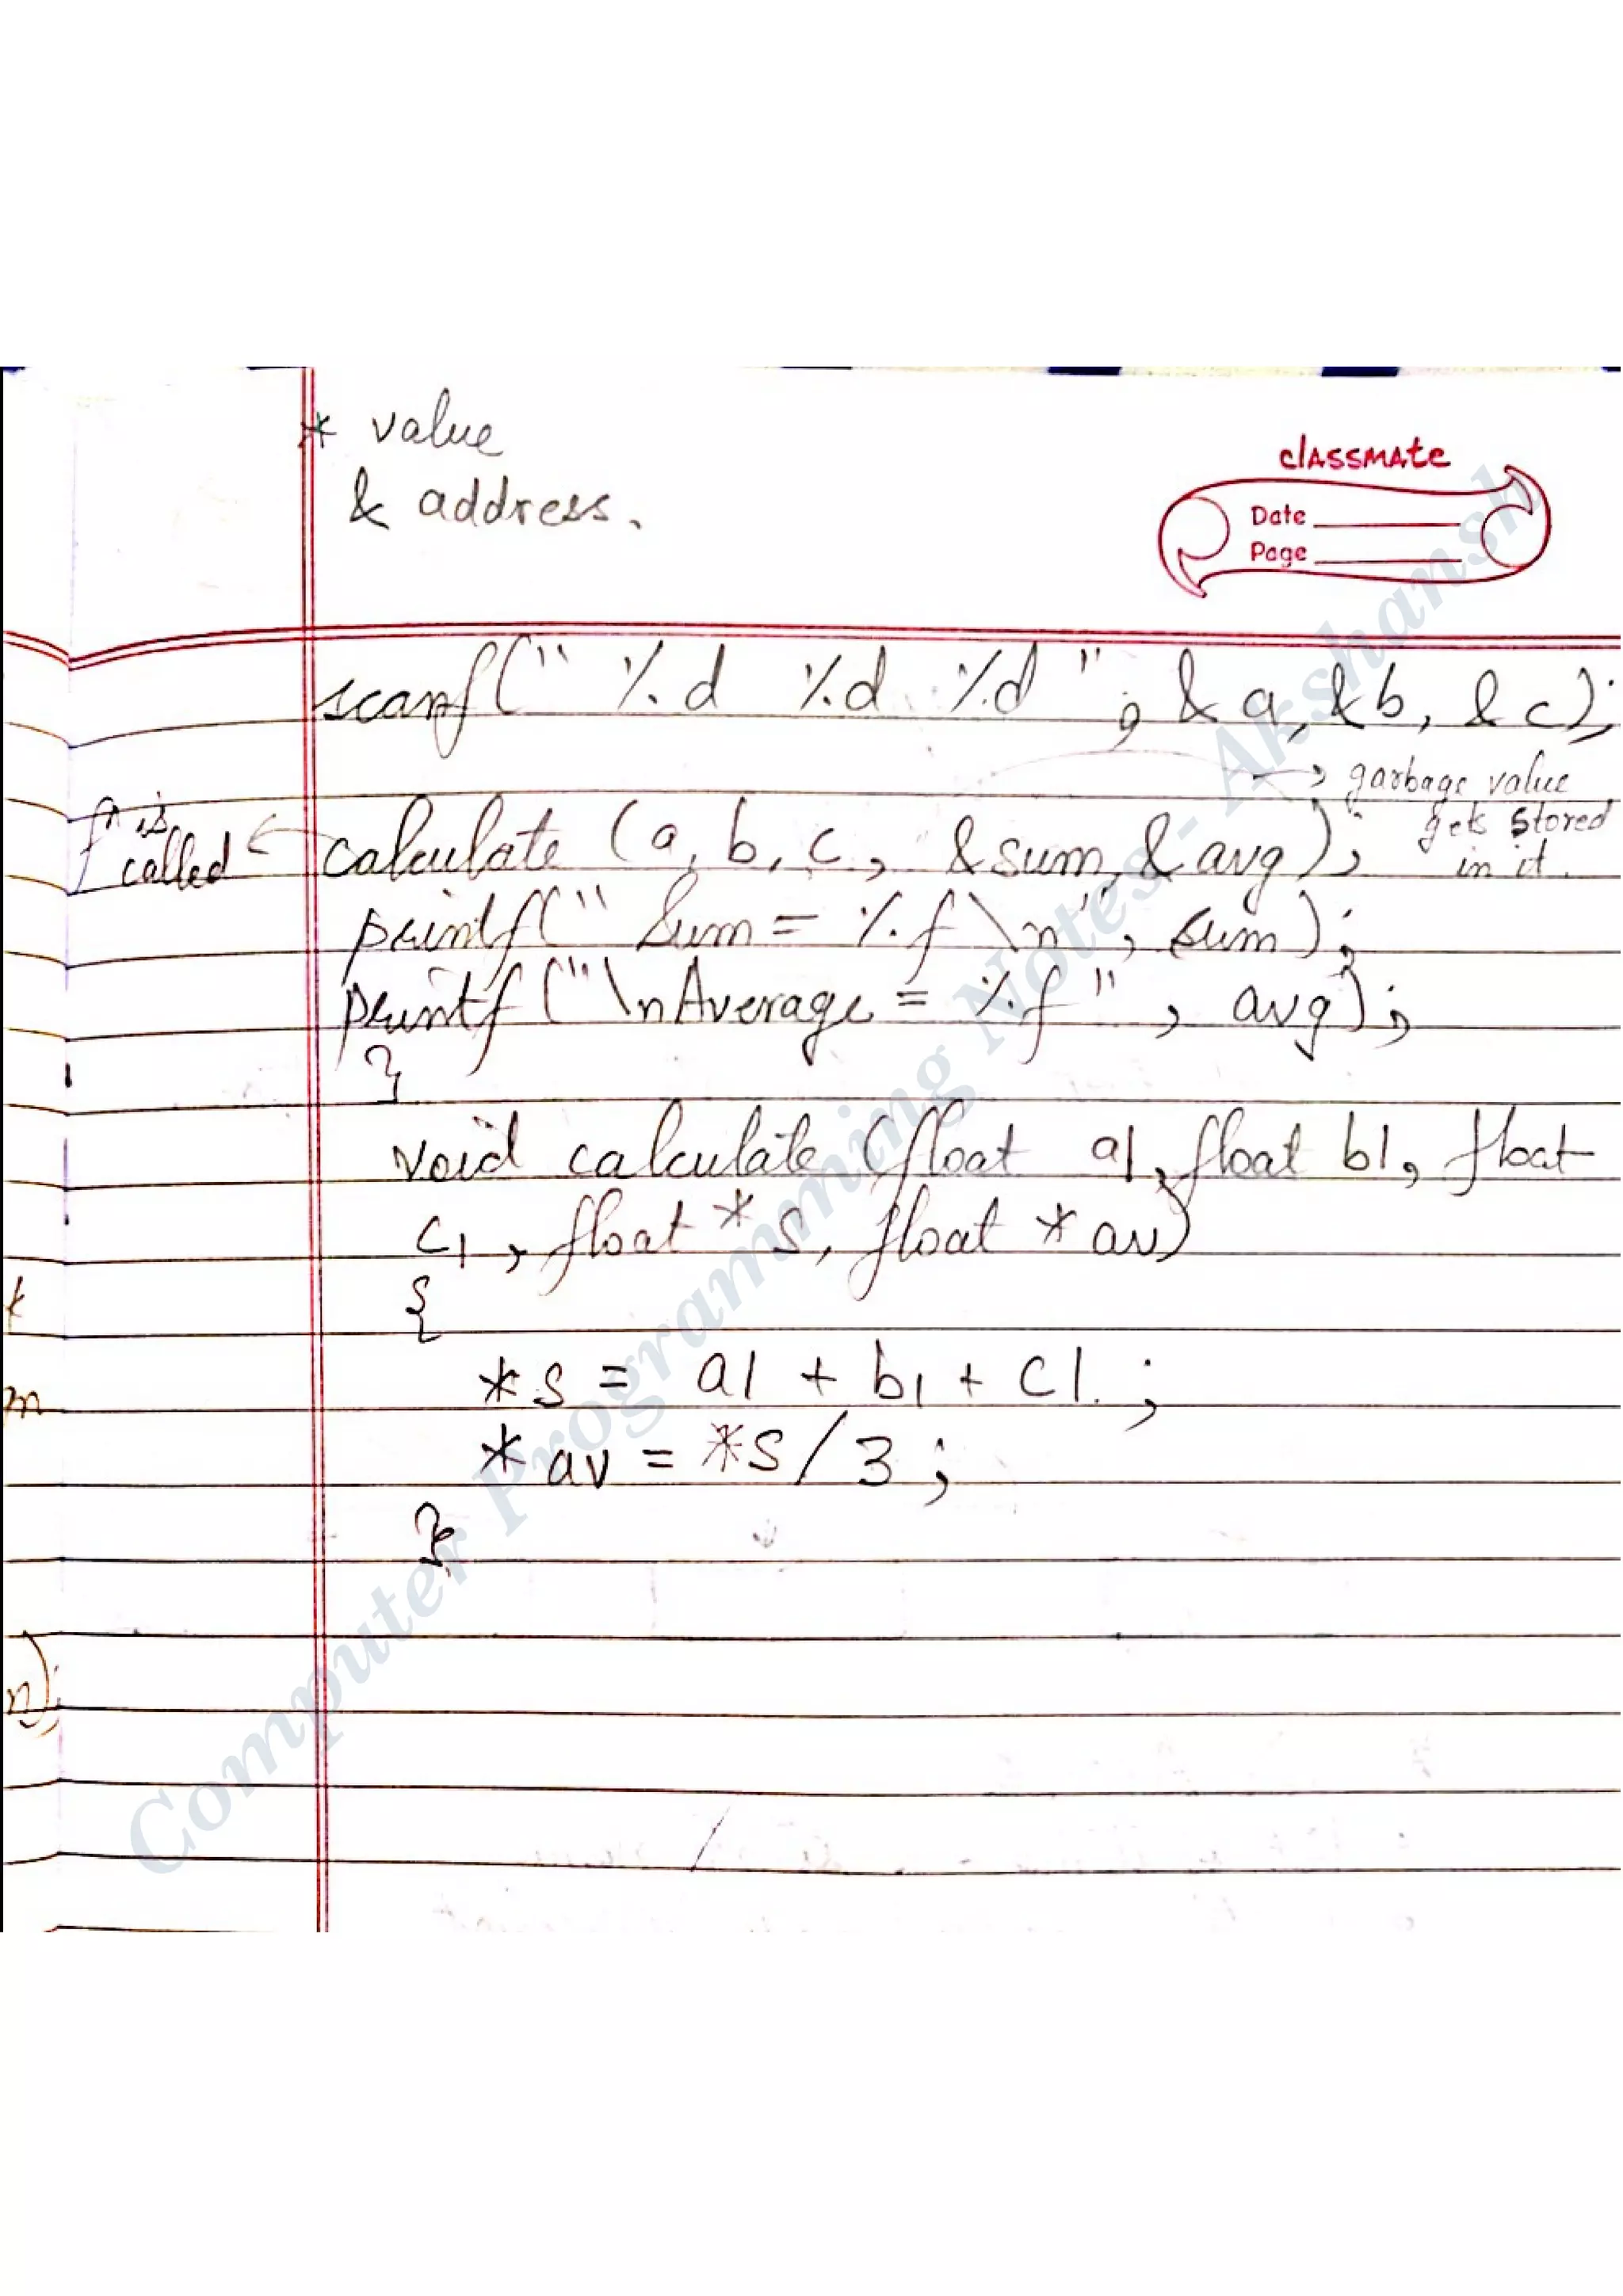 * value
& address.
classmate
Date
Page
scanf(" %d %d %d ", &a, &b, &c);
→ garbage value
gets stored
in it.
fn is
called
calculate (a, b, c, &sum, &avg);
printf(" Sum = %f \n", sum);
printf("\nAverage = %f ", avg);
}
void calculate (float a1, float b1, float
c1, float * s, float * av)
{
*s = a1 + b1 + c1 ;
* av = *s / 3 ;
}
k
m
n);
Computer Programming Notes - Akshansh